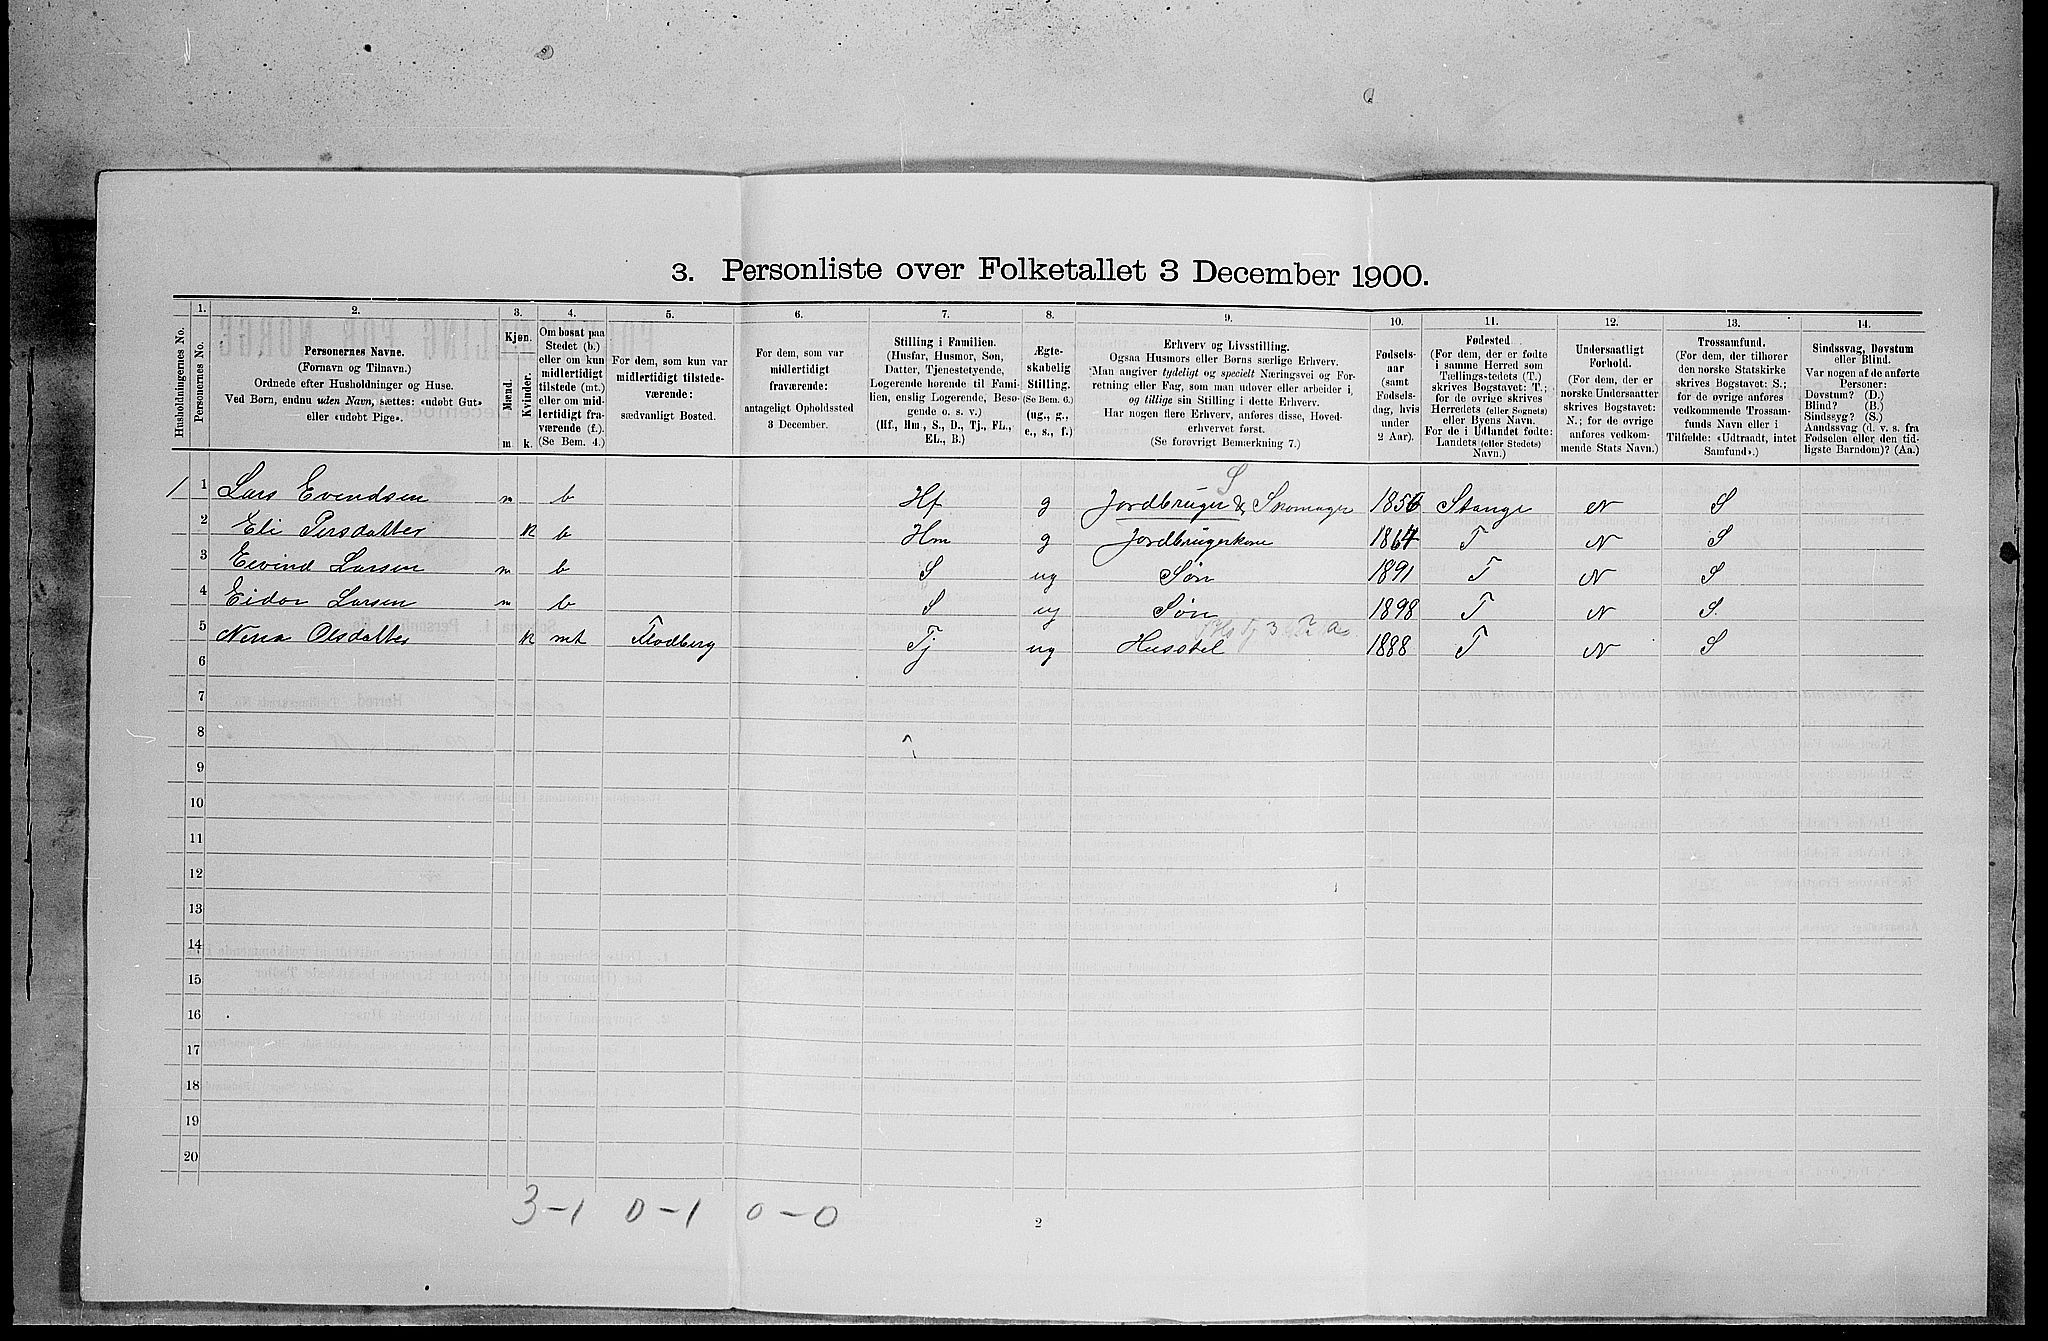 3. Personliste over Folketallet 3 December 1900.
Husholdningernes No.
1.
Personernes No.
2.
Personernes Navne.
(Fornavn og Tilnavn.)
Ordnede efter Husholdninger og Huse.
Ved Børn, endnu uden Navn, sættes: «udøbt Gut»
eller «udøbt Pige».
3.
Kjøn.
Mænd.
Kvinder.
m. k.
4.
Om bosat paa
Stedet (b.)
eller om kun
midlertidigt
tilstede (mt.)
eller om mid-
lertidigt fra-
værende (f.).
(Se Bem. 4.)
5.
For dem, som kun var
midlertidigt tilstede-
værende:
sædvanligt Bosted.
6.
For dem, som var
midlertidigt
fraværende:
antageligt Opholdssted
3 December.
7.
Stilling i Familien.
(Husfar, Husmor, Søn,
Datter, Tjenestetyende,
Logerende hørende til Fami-
lien, enslig Logerende, Besø-
gende o. s. v.)
(Hf., Hm., S., D., Tj., FL.,
EL., B.)
8.
Ægte-
skabelig
Stilling.
(Se Bem. 6.)
(ug., g.,
e., s., f.)
9.
Erhverv og Livsstilling.
Ogsaa Husmors eller Børns særlige Erhverv.
Man angiver tydeligt og specielt Næringsvei og For-
retning eller Fag, som man udøver eller arbeider i,
og tillige sin Stilling i dette Erhverv.
Har nogen flere Erhverv, anføres disse, Hoved-
erhvervet først.
(Se forøvrigt Bemerkning 7.)
10.
Fødsels-
aar
(samt
Fødsels-
dag, hvis
under
2 Aar).
11.
Fødested.
(For dem, der er fødte
i samme Herred som
Tællings-stedets (T.)
skrives Bogstavet: T.;
for de øvrige skrives
Herredets (eller Sognets)
eller Byens Navn.
For de i Udlandet fødte:
Landets (eller Stedets)
Navn.)
12.
Undersaatligt
Forhold.
(For dem, der er
norske Undersaatter
skrives Bogstavet:
N.; for de øvrige
anføres vedkom-
mende Stats Navn.)
13.
Trossamfund.
(For dem, der tilhører
den norske Statskirke
skrives Bogstavet: S.;
for de øvrige anføres
vedkommende Trossam-
funds Navn eller i
Tilfælde: «Udtraadt, intet
Samfund».)
14.
Sindssvag, Døvstum
eller Blind.
Var nogen af de anførte
Personer:
Døvstum? (D.)
Blind? (B.)
Sindssyg? (S.)
Aandssvag (d. v. s. fra
Fødselen eller den tid-
ligste Barndom)? (Aa.)
S
1 1 Lars Evendsen m b Hf g Jordbruger & Skomager 1856 Stange N S
2 Eli Persdatter k b Hm g Jordbrugerkone 1864 T N S
3 Eivind Larsen m b S ug Søn 1891 T N S
4 Eidar Larsen m b S ug Søn 1898 T N S.
5 Olsdatter k mt Flodberg Tj ug Husstel 1888 T N S
6
7
8
9
10
11
12
13
14
15
16
17
18
19
20
3-1 0-1 0-0
2